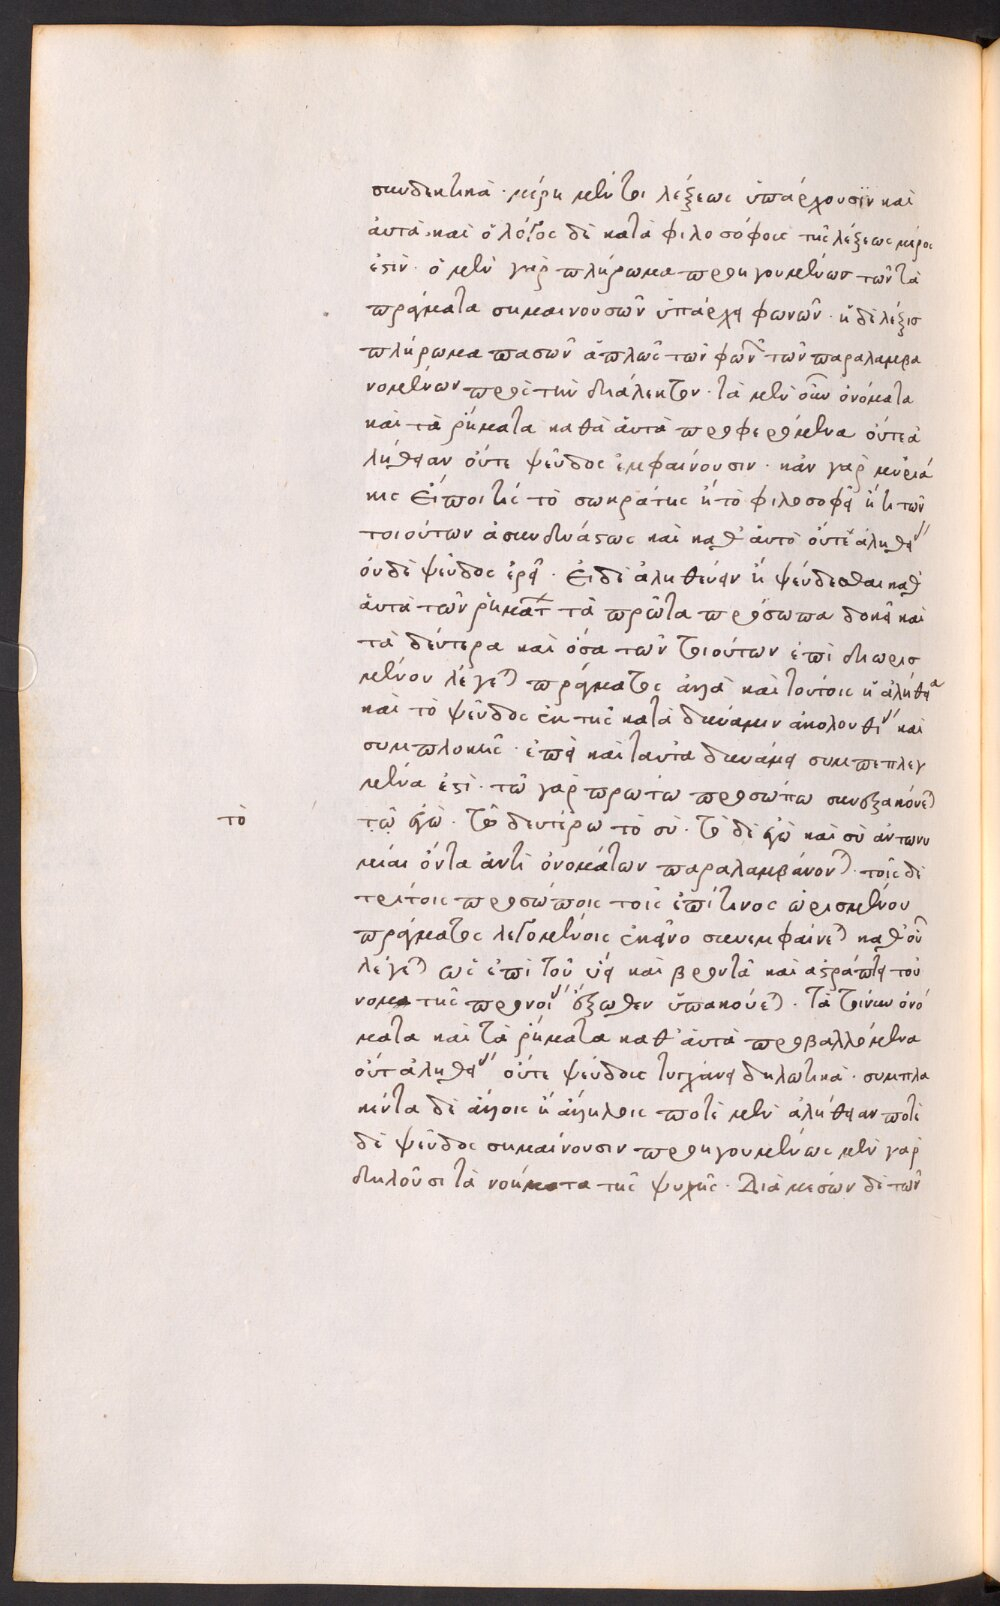 συνδετικὰ · μέρη μέν τοι λέξεως ὑπάρχουσιν καὶ
ἀυτά· καὶ ὁ λόγος δὲ κατὰ φιλοσόφοις τῆς λέξεως μέρος
ἐστὶν · ὁ μὲν γὰρ πλήρωμα προηγουμένων τῶν τὰ
πράγματα σημαινουσῶν ὑπάρχει φωνῶν · ἡ δὲ λέξις
πλήρωμα πασῶν ἁπλῶς τῶν φων τῶν παραλαμβα
νομένων πρὸς τὴν διάλεκτον · τὰ μὲν οὖν ὀνόματα
καὶ τὰ ῥήματα καθὰ ἀυτὰ προφερόμενα ὀύτε ἀ
λήθειαν ὀύτε ψεῦδος ἐμφαίνουσιν · κἂν γὰρ μυριά
κις ἐίποι τίς τὸ σωκράτης ἢ τὸ φιλοσοφεῖ ἤ τι τῶν
τοιούτων ἀσυνδυάστως καὶ καθ ἀυτὸ ὀύτε ἀληθει
ὀυδὲ ψεῦδος ἐρεῖ · Ἐι δὲ ἀληθέυειν ἢ ψέυδεσθαι καθ
ἀυτὰ τῶν ῥηματ τὰ πρῶτα πρόσωπα δοκεῖ καὶ
τὰ δέυτερα καὶ ὅσα τῶν τοιούτων ἐπὶ διωρισ
μένου λέγεται πράγματος ἀλλὰ καὶ τούτοις ἡ ἀλήθεια
καὶ τὸ ψεῦδος ἐκ τῆς κατὰ δύναμιν ἀκολουθι καὶ
συμπλοκῆς · ἐπεὶ καὶ ταῦτα δυνάμει συμπεπλεγ
μένα ἐστὶ · τῶ γὰρ πρώτω προσώπω συνεξακούεται
τὸ
τῶ ἐγὼ · τῶ δευτέρω τὸ σύ · τὸ δὲ ἐγὼ καὶ σὺ ἀντωνυ
μίαι ὄντα ἀντὶ ὀνομάτων παραλαμβάνονται · τοῖς δὲ
τρίτοις προσώποις τοῖς ἐπί τινος ὡρισμένου
πράγματος λεγομένοις ἐκεῖνο συνεμφαίνεται καθ οὗ
λέγεται ὡς ἐπὶ τοῦ ὕει καὶ βροντᾶ καὶ ἀστράπτει τοὔ
νομα τῆς προνοι ἔξωθεν ὑπακούεται · τὰ τοίνυν ὀνό
ματα καὶ τὰ ῥήματα καθ ἀυτὰ προβαλλόμενα
ὀύτ ἀληθει ὀύτε ψέυδοις τυγχάνει δηλωτικά · συμπλα
κέντα δὲ ἀλλοις ἢ ἀλλήλοις ποτὲ μὲν ἀλήθειαν ποτὲ
δὲ ψεῦδος σημαίνουσιν προηγουμένως μὲν γὰρ
δηλοῦσι τὰ νοήματα τῆς ψυχῆς · Διὰ μεσών δὲ τῶν